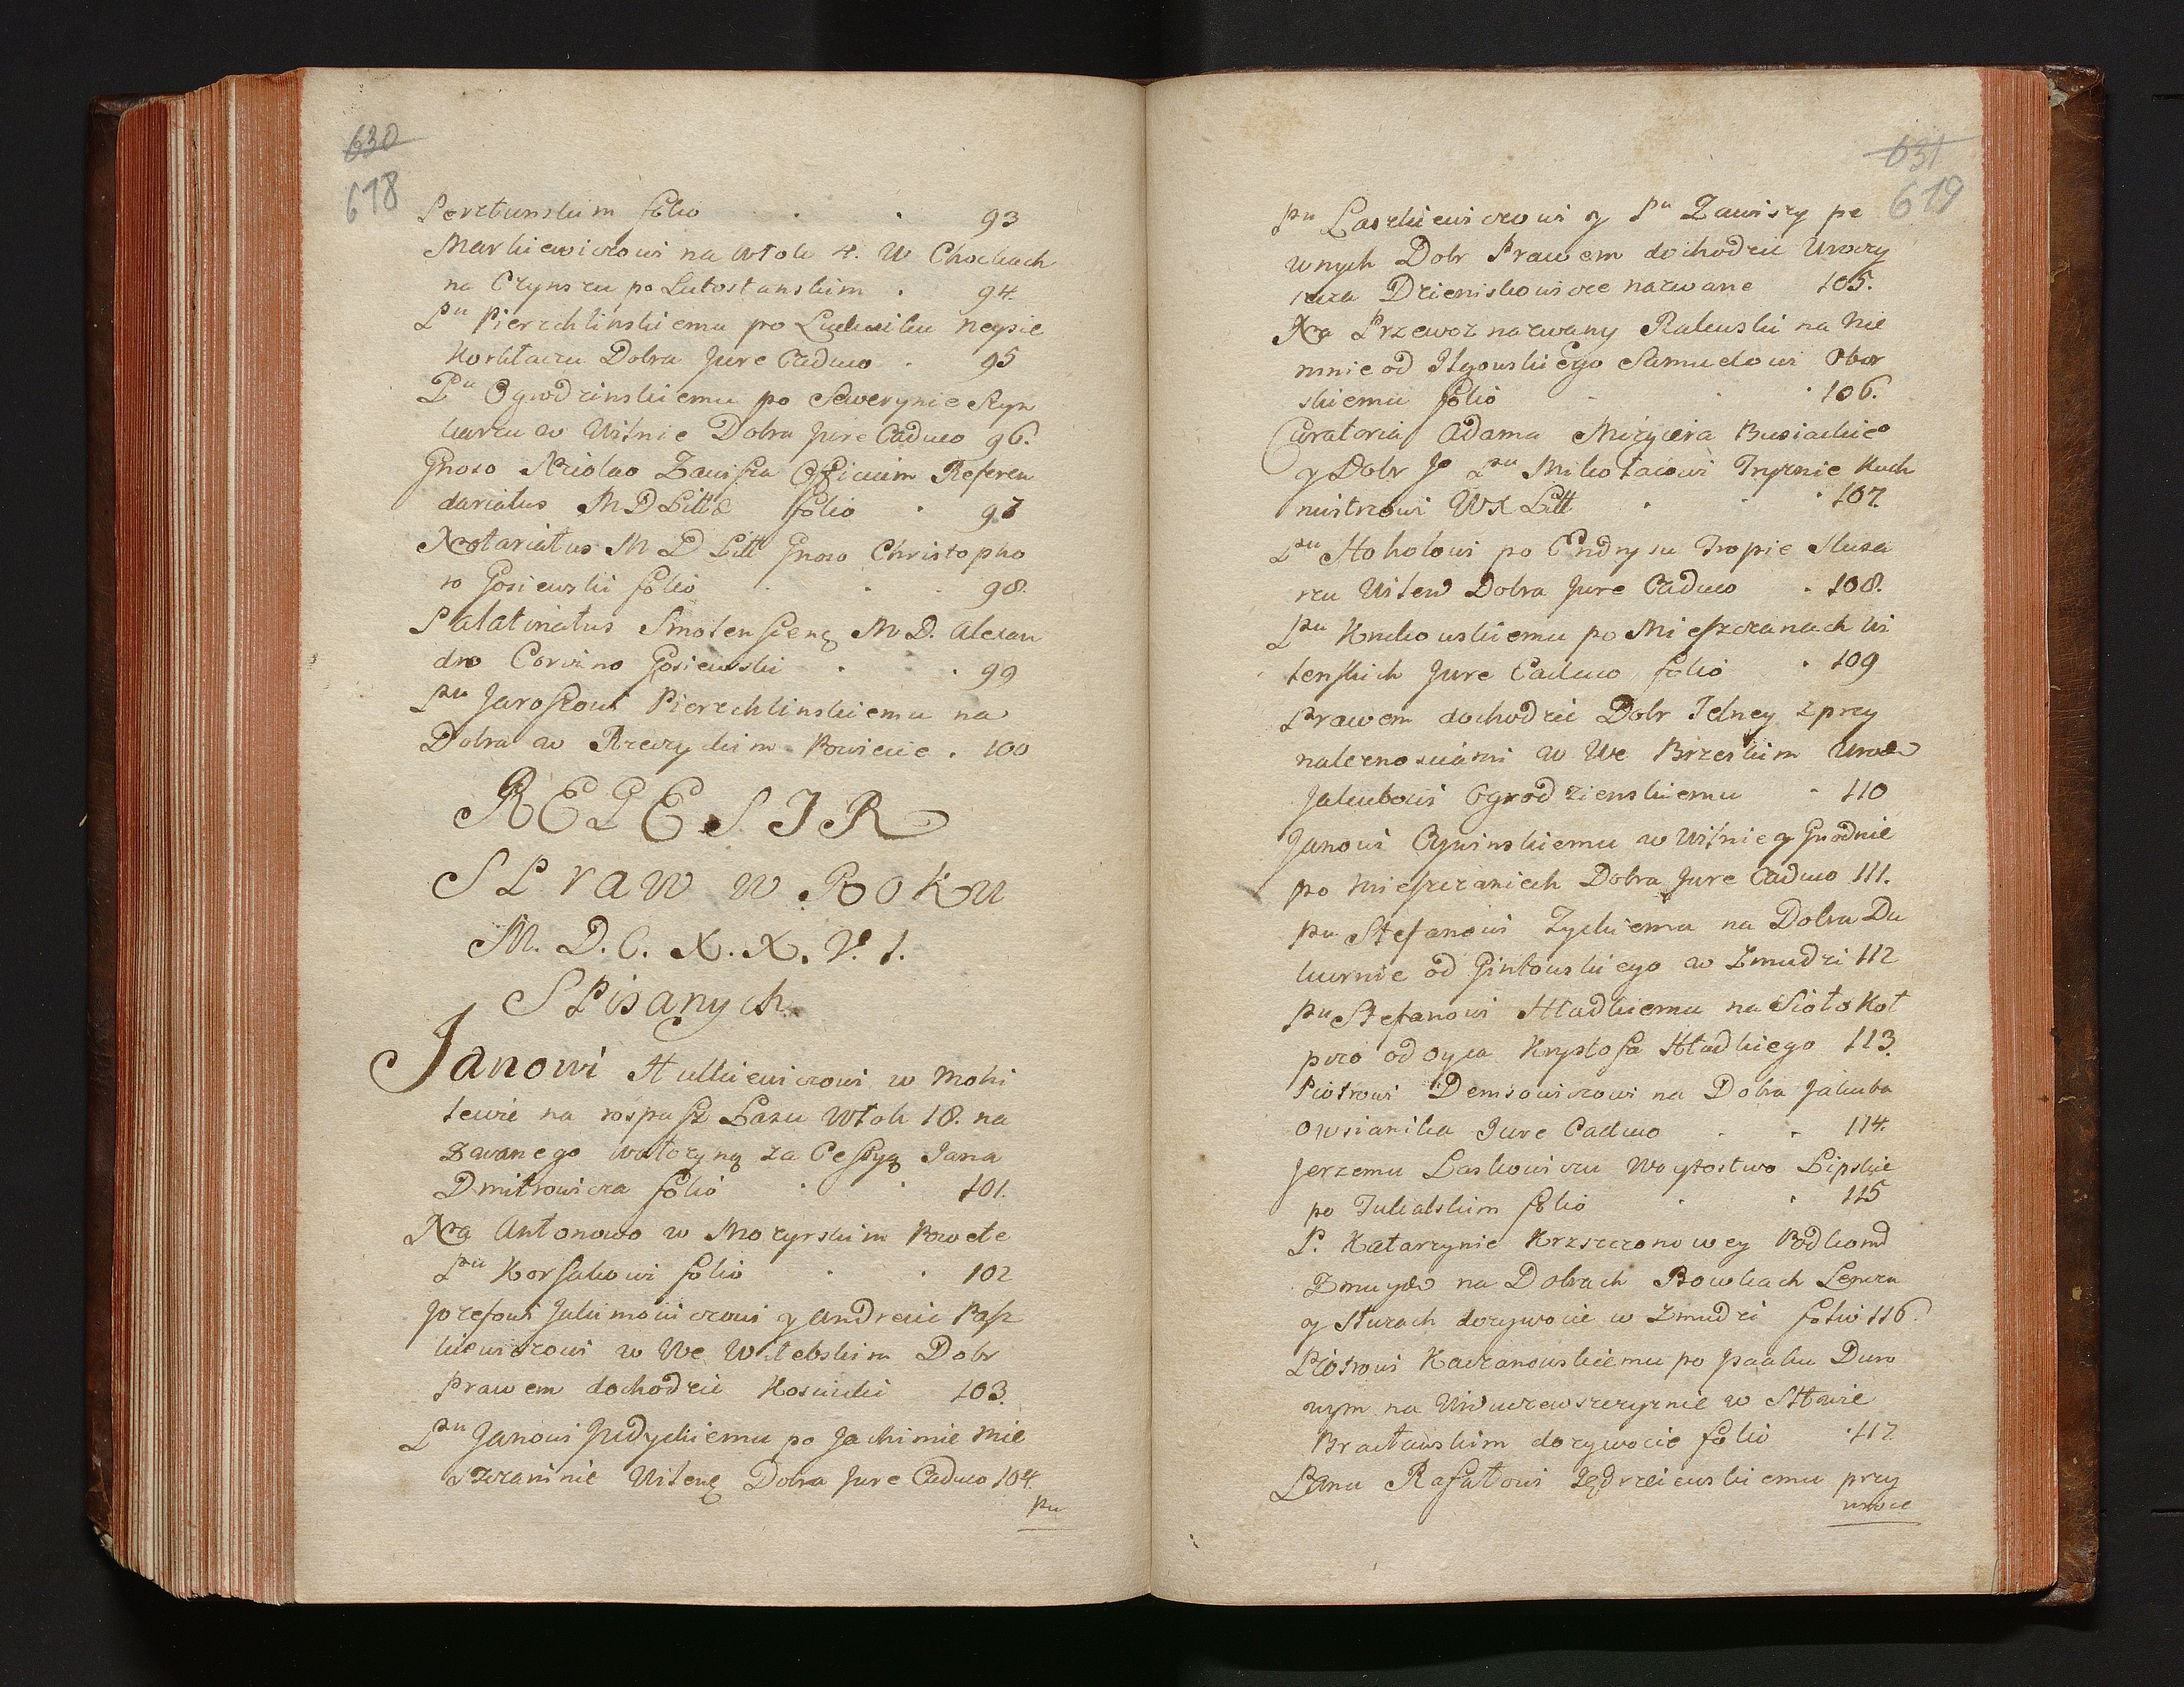 630
618
Perztunskim folio 93
Markiewiczowi na Włok 4. W Chockach
na Czynszu po Lutostanskim . 94.
Pnu Pierzchlinskiemu po Ludwiku Neysie
Kortaczu Dobra Jure Caduco . 95
Pu Ogrodzinskiemu po Sewerynie Ryn
karzu w Wilnie Dobra Jure Caduco 96.
Gnoso Nicolao Zawisza Officium Referen
dariatus M D Litt folio . 97
Notariatus M D Litt Gnoso Christopho
ro Gosiewski folio 98.
Palatinatus Smolensceng M D. Alexan
dro Corvino Gosiewski . . 99
Pnu Jaroszowi Pierzchlinskiemu na
Dobra w Rzeczyckim Powiecie . 100
REGESTR
SPraw w ROKu
M. D. C. X. X. V. I.
SPisanych.
Janowi Hulkiewiczowi w Mohi
lewie na rospasz Lasu Włok 18. na
zwanego za Cessyą Jana
Dmitrowicza folio . . 101.
Na Antonowo w Mozyrskim Powete
Pnu Korsakowi folio . . 102
Jozefowi Jakimowiczowi y Andrzeiu Pasz
kiewiczowi w We Witebskim Dobr
Prawem dochodzic Kosciuki 103.
Pnu Janowi Judyckiemu po Jachimie Mie
szczaninie Wileng Dobra Jure Caduco 104.
Pu
631
619
Pu Laszkiewiczowi y Pu Zawiszy pe
wnych Dobr Prawem dochodzic Uroczy
scza Dzieniskowicze nazwane 105.
Na Przewoz nazwany Ralewski na Nie
mnie od Ilgowskiego Samuelowi Obor
skiemu folio . . 106.
Curatoria Adama Mizgiera Busiackieo
y Dobr Jo Pnu Mikołaiowi Tryznie Kuch
mistrzowi WX Litt . . 107.
Pnu Hoholowi po Endrysu Tropie Slusa
rzu Wilew Dobra Jure Caduco . 108.
Pnu Knikowskiemu po Mieszczanach Wi
lenskich Jure Caduco folio . 109
Prawem dochodzic Dobr Jelney z przy
należnosciami w We Brzeskim Urode
Jakubowi Ogrodzienskiemu . 110
Janowi Cywinskiemu w Wilnie y Grodnie
po Mieszczaniech Dobra Jure Caduco 111.
Pu Stefanowi Zyckiemu na Dobra Du
kurnie od Gintowskiego w Zmudzi 112
Pu Stefanowi Hładkiemu na Sioło Koł
pico od Oyca Krysztofa Hładkiego 113.
Piotrowi Demsowiczowi na Dobra Jakuba
Owsianika Jure Caduco . . 114.
Jerzemu Laskowiczu Woytostwo Lipskie
po Tukalskim folio . . 115
P. Katarzynie Krzszczonowey Podkomd
Zmuyde na Dobrach Powkach Lepcza
y Sturach dozywocie w Zmudzi folio 116.
Piotrowi Kaczanowskiemu po Pawłu Duro
wym na w Sttwie
Bracławskim dozywocie folio . 117
Panu Rafałowi Jędrzeiewskiemu przy
wroce